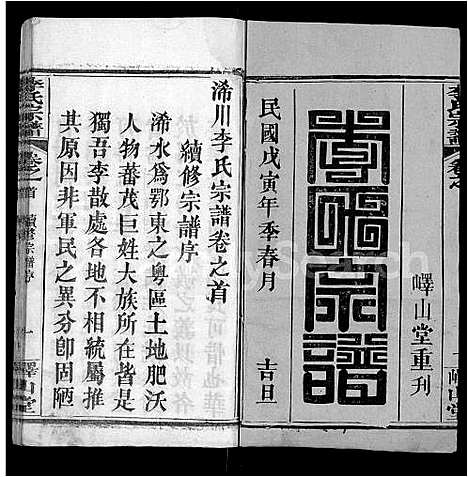 嶧山堂重刊
李氏宗譜
民國戊寅年季春月
吉旦
浠川李氏宗譜卷之首
續修宗譜序
浠水爲鄂東之粵區土地肥沃
人物蕃茂巨姓大族所在皆是
獨吾李散處各地不相統屬推
其原因非軍民之異分卽固陋
李氏宗譜
卷之首
續修宗譜序
一
嶧山堂